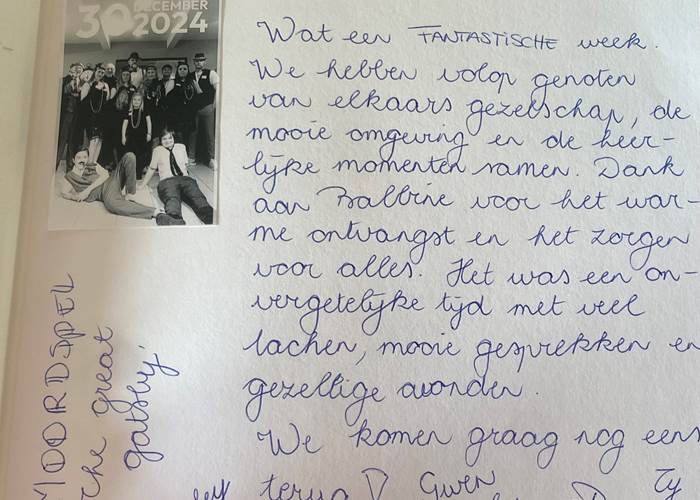 30 DECEMBER
2024
Wat een FANTASTISCHE week.
We hebben volop genoten
van elkaars gezelschap, de
mooie omgeving en de heer-
lijke momenten samen. Dank
aan Balbine voor het war-
me ontvangst en het zorgen
voor alles. Het was een on-
vergetelijke tijd met veel
lachen, mooie gesprekken en
gezellige avonden.
We komen graag nog eens
terug Gwen
MOORDSPEL
the great
gatsby,